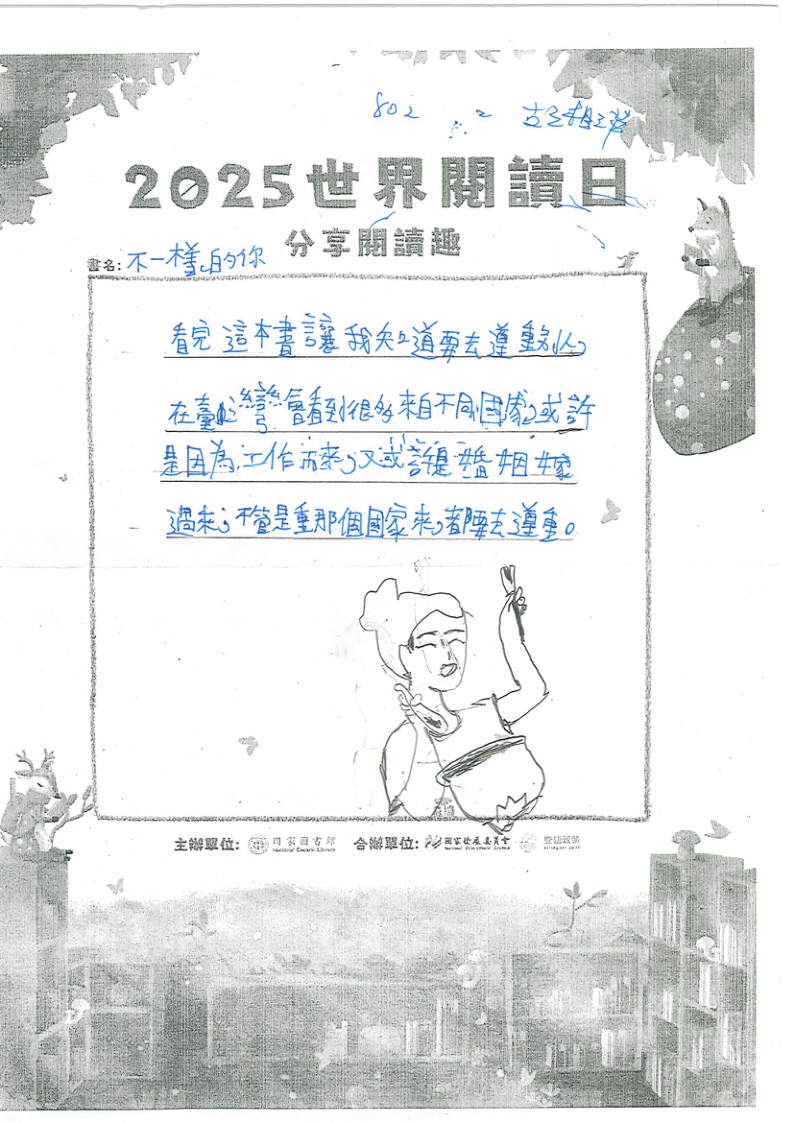 802 2
2025世界閱讀日
分享閱讀趣
書名: 不一樣的你
看完這本書讓我知道要去遵重別人，
在臺灣會看到很多來自不同國家，或許
是因為工作而來，又或許是婚姻嫁
過來，不管是重那個國家來，都要去遵重。
主辦單位: 國家圖書館 合辦單位: 國家發展委員會 雙語政策
National Central Library National Development Council Bilingual